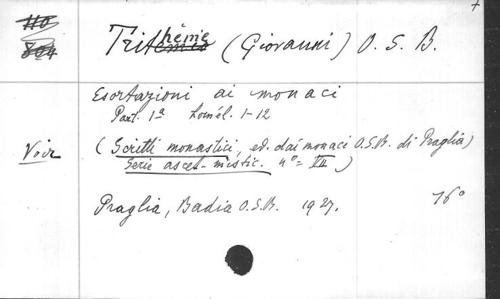 110
804
Trithème (Giovanni) O. S. B.
Esortazioni ai monaci
Part. 1a Homél. 1-12
Voir
(Scritti monastici, ed. dai monaci O.S.B. di Praglia)
Serie ascet-mistic. no = VII)
Praglia, Badia O.S.B. 1927. 16o